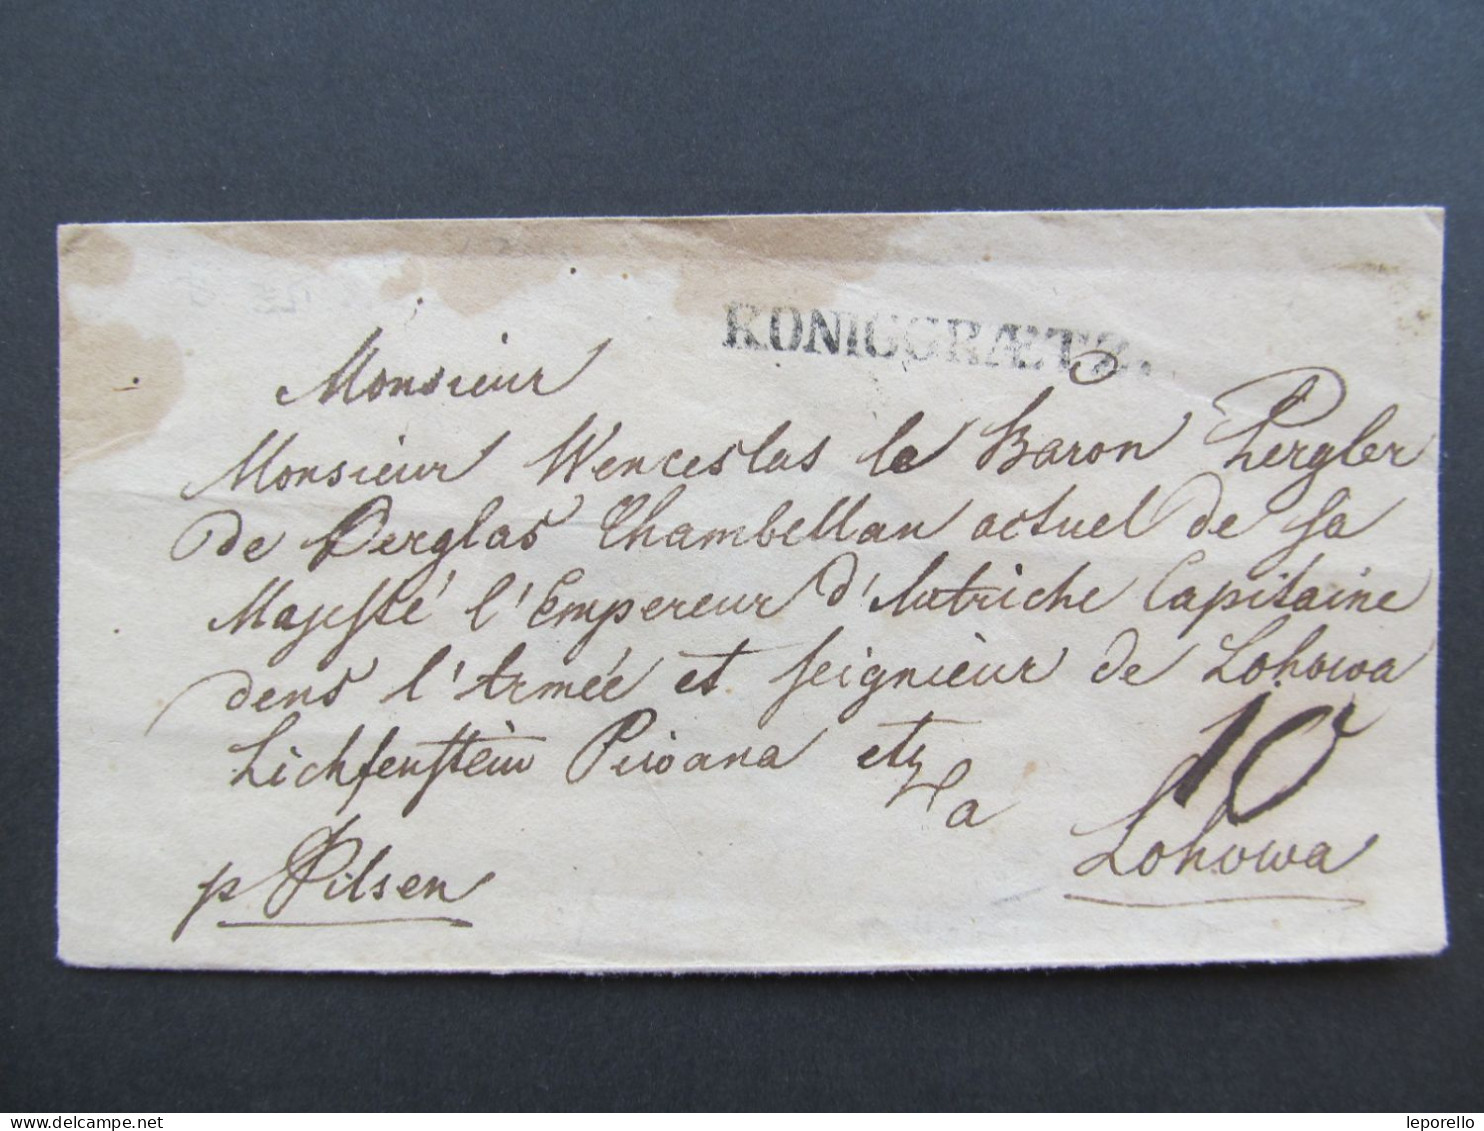 KONIGGRÆTZ.
Monsieur
Monsieur Wenceslas le Baron Pergler
de Perglas Chambellan actuel de sa
Majesté l'Empereur d'Autriche Capitaine
dens l'Armée et seignieur de Lohowa
Lichtenstein Piwana etz
a
10
Lohowa
p Pilsen
leporello